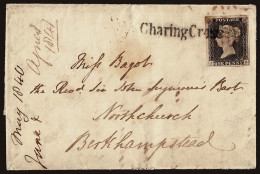 Charing Cross
POSTAGE
ONE PENNY
Miss Bagot
the Revd Sir John Seymour's Bart
Northchurch
Berkhampstead
May 1840
June &
Agnes